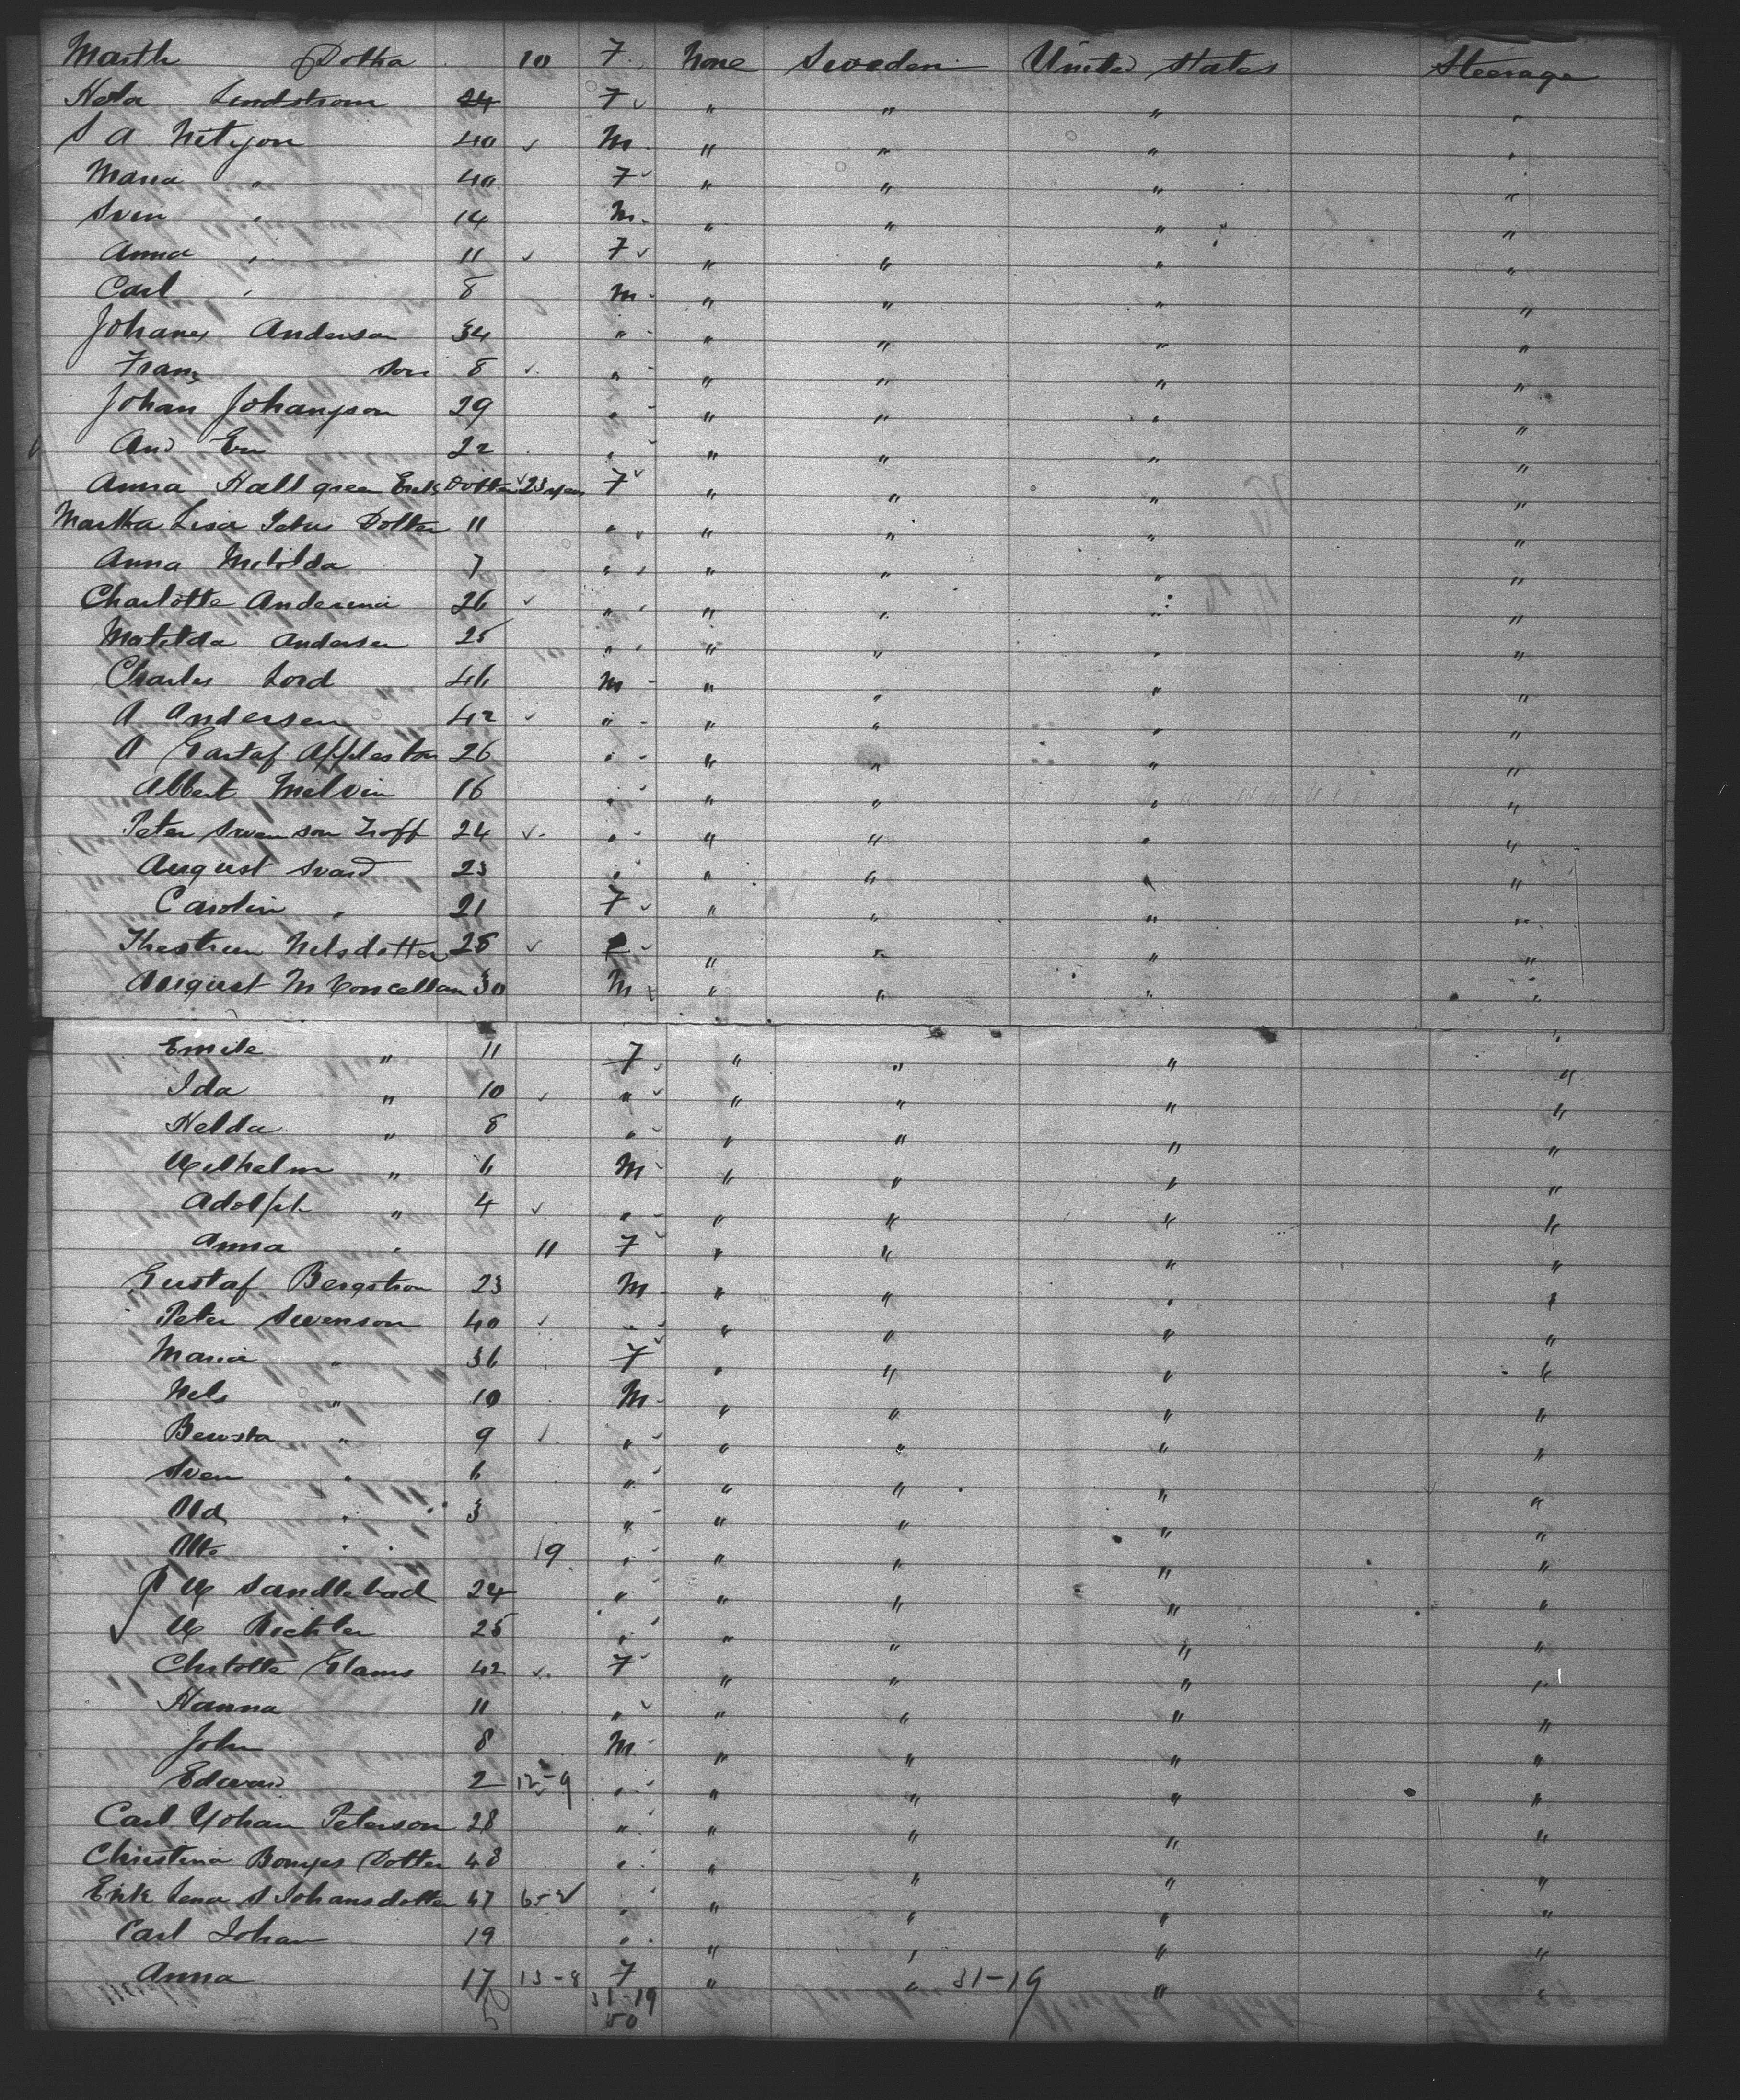 Marth Dotha 10 F None Sweden United States Steerage
Hela Lindstrom 24 F " " " "
S A Nilsson 40 M " " " "
Maria " 40 F " " " "
Sven " 14 M " " " "
Anna " 11 F " " " "
Carl " 8 M " " " "
Johanes Anderson 34 " " " " "
Franz Son 8 " " " " "
Johan Johansson 29 " " " " "
And En 22 " " " " "
Anna Hallgreen Ericks Dotter 23 years F " " " "
Martha Lisa Peters Dotter 11 " " " " "
Anna Matilda 7 " " " " "
Charlotte Anderina 26 " " " " "
Matilda Andersen 25 " " " " "
Charles Lord 46 M " " " "
A Andersen 42 " " " " "
A Gustaf Appleston 26 " " " " "
Albert Melvin 16 " " " " "
Peter Swenson Hoff 24 " " " " "
August Svard 23 " " " " "
Carolin " 21 F " " " "
Nelsdotter 25 " " " "
August M 30 M " " " "
Emile " 11 F " " " "
Ida " 10 " " " " "
Helda " 8 " " " " "
Wilhelm " 6 M " " " "
Adolph " 4 " " " " "
Anna " 11 F " " " "
Gustaf Bergstrom 23 M " " " "
Peter Swenson 40 " " " " "
Maria " 36 F " " " "
Nels " 10 M " " " "
" 9 " " " " "
Sven " 6 " " " " "
" 3 " " " " "
" 9 " " " " "
J W 24 " " " " "
W Richter 25 " " " " "
Chrlotte 42 F " " " "
Hanna 11 " " " " "
John 8 M " " " "
Edward 2 12-9 " " " " "
Carl Yohan Peterson 28 " " " " "
Christina Dotter 48 " " " " "
Erik Lena S Johansdotter 47 6-2 " " " " "
Carl Johan 19 " " " " "
Anna 17 13-8 F " " 31-19 " "
50 31-19
50